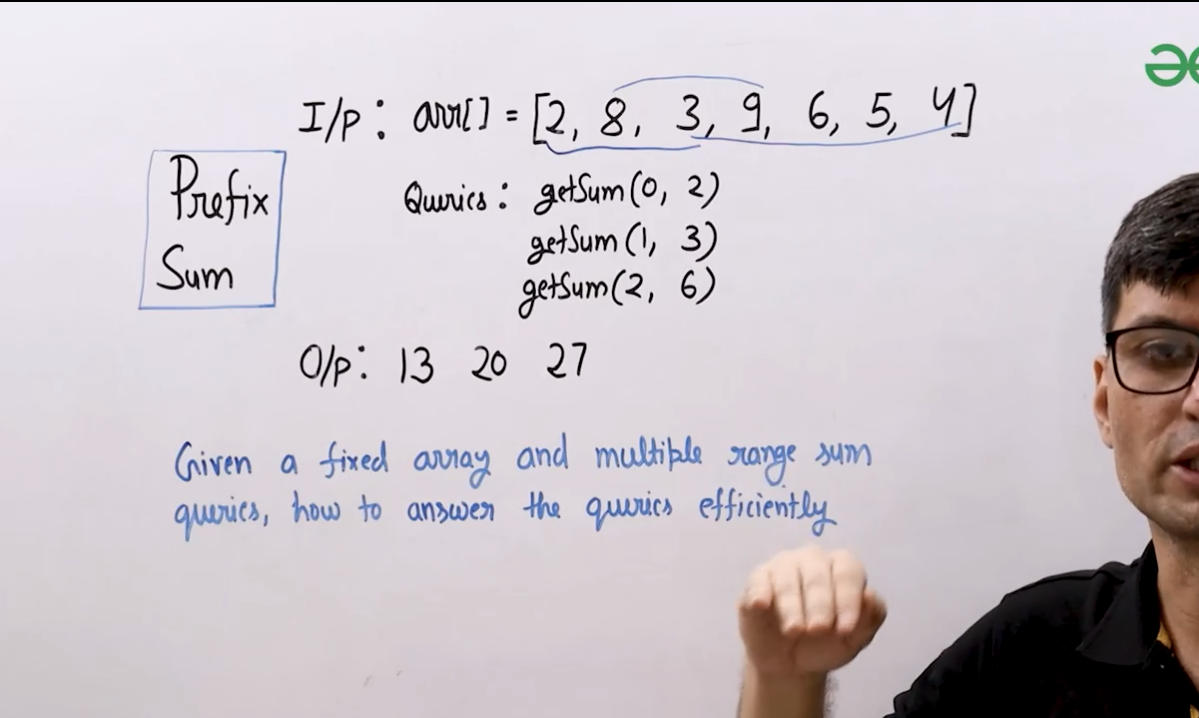 I/p: arr[] = [2, 8, 3, 9, 6, 5, 4]
Prefix
Sum
Queries: getSum(0, 2)
getSum(1, 3)
getSum(2, 6)
O/p: 13 20 27
Given a fixed array and multiple range sum
queries, how to answer the queries efficiently